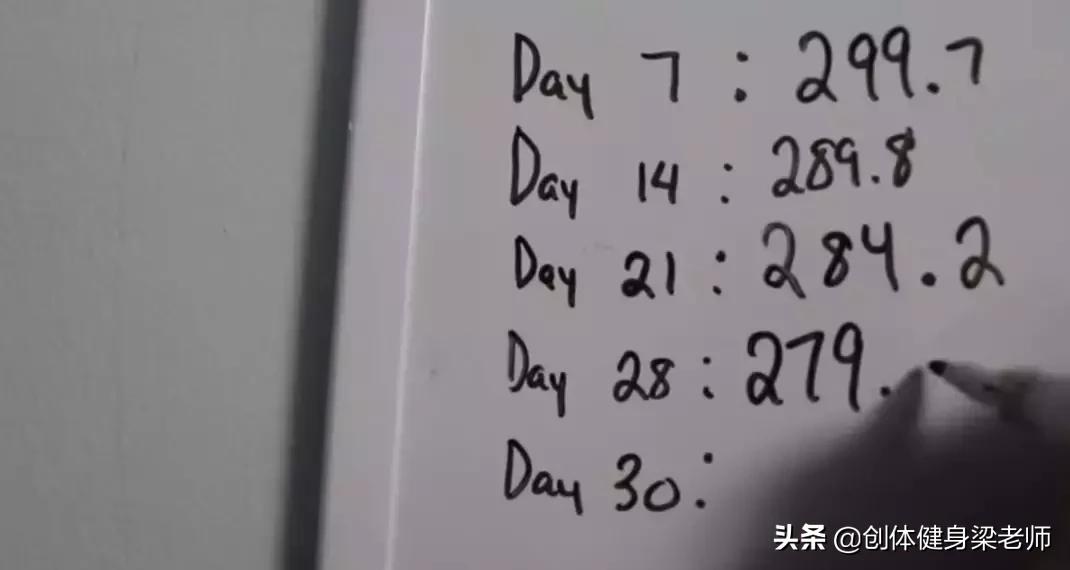 Day 7 : 299.7
Day 14 : 289.8
Day 21 : 284.2
Day 28 : 279.
Day 30 :
头条 @创体健身梁老师